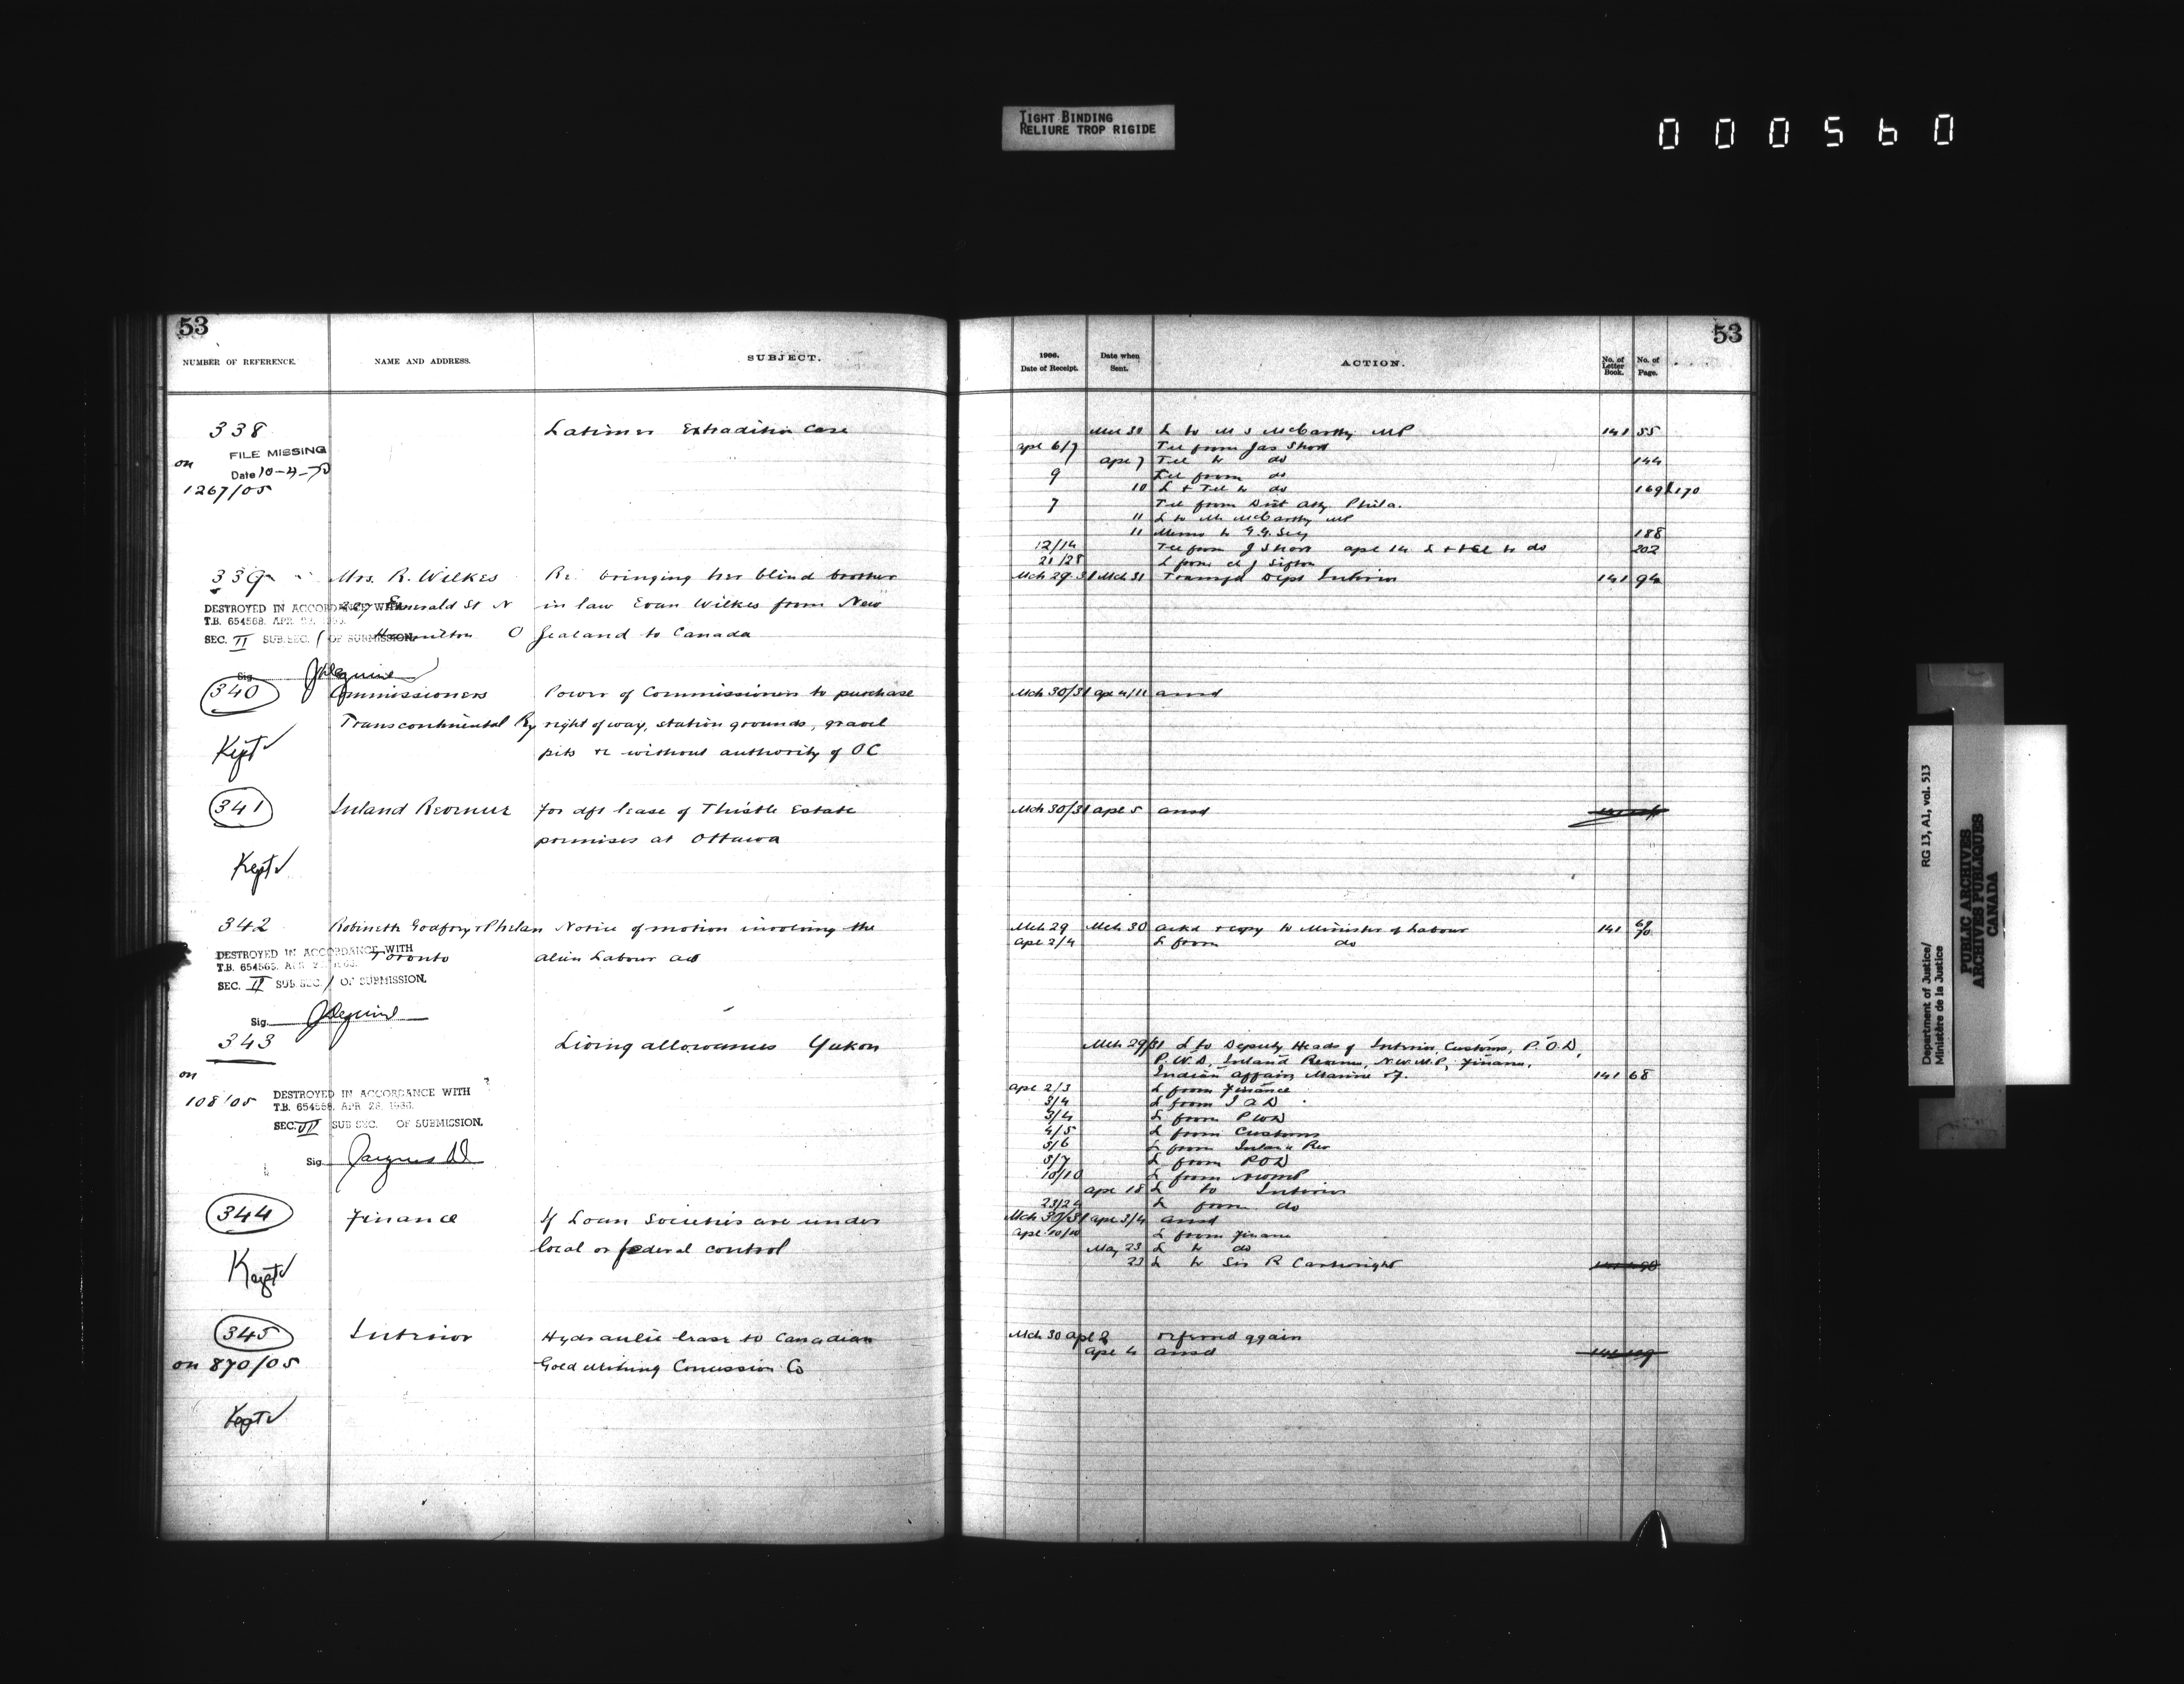 TIGHT BINDING
RELIURE TROP RIGIDE
000560
53
NUMBER OF REFERENCE. NAME AND ADDRESS. SUBJECT.
338 Latimer Extradition Case
FILE MISSING
on Date 10-4-70
1267/05
339 Mrs. R. Wilkes Re bringing her blind brother
Emerald St N in law Evan Wilkes from New
DESTROYED IN ACCORDANCE WITH
T.B. 654568. APR
Hamilton O Zealand to Canada
SEC. II SUB.SEC. 1 OF SUBMISSION.
Sig.
340 Commissioners Power of Commissioners to purchase
Transcontinental Ry right of way, station grounds, gravel
Kept pits &c without authority of OC
341 Inland Revenue For dft lease of Thistle Estate
premises at Ottawa
Kept
342 Robinette Godfrey & Phelan Notice of motion involving the
Toronto alien Labour act
DESTROYED IN ACCORDANCE WITH
T.B. 654568. APR
SEC. II SUB.SEC. 1 OF SUBMISSION.
Sig.
343 Living allowances Yukon
on
108/05
DESTROYED IN ACCORDANCE WITH
T.B. 654568. APR 28.
SEC. III SUB SEC. OF SUBMISSION.
Sig.
344 Finance If Loan Societies are under
local or federal control
Kept
345 Interior Hydraulic lease to Canadian
on 870/05 Gold Mining Concession Co
Kept
53
1906. Date of Receipt. Date when Sent. ACTION. No. of Letter Book. No. of Page.
Mch 30 L to M S McCarthy MP 141 55
Apl 6/7 Tel from Jas Short
Apl 7 Tel to do 144
9 Tel from do
10 L & Tel to do 169 170
7 Tel from Dist Atty. Phila.
11 L to Mr McCarthy MP
11 Memo to G.G. Secy 188
12/14 Tel from J Short apl 14 L & tel to do 202
21/25 L from A J Sifton
Mch 29.31 Mch 31 Transfd Dept Interior 141 94
Mch 30/31 apl 4/11 ansd
Mch 30/31 apl 5 ansd
Mch 29 Mch 30 ackd & copy to Minister of Labour 141 69/70
apl 2/4 L from do
Mch 29/31 L to Deputy Heads of Interior, Customs, P.O.D,
P.W.D, Inland Revenue, N.W.M.P, Finance,
Indian Affairs, Marine & F. 141 68
apl 2/3 L from Finance
3/4 L from I A D
3/4 L from PWD
4/5 L from Customs
5/6 L from Inland Rev
5/7 L from POD
10/10 L from NWMP
apl 18 L to Interior
23/24 L from do
Mch 30/31 apl 3/4 ansd
apl 10/10 L from Finance
May 23 L to do
23 L to Sir R Cartwright
Mch 30 apl 2 referred again
apl 4 ansd
Department of Justice/ RG 13, A1, vol. 513
Ministère de la Justice
PUBLIC ARCHIVES
ARCHIVES PUBLIQUES
CANADA